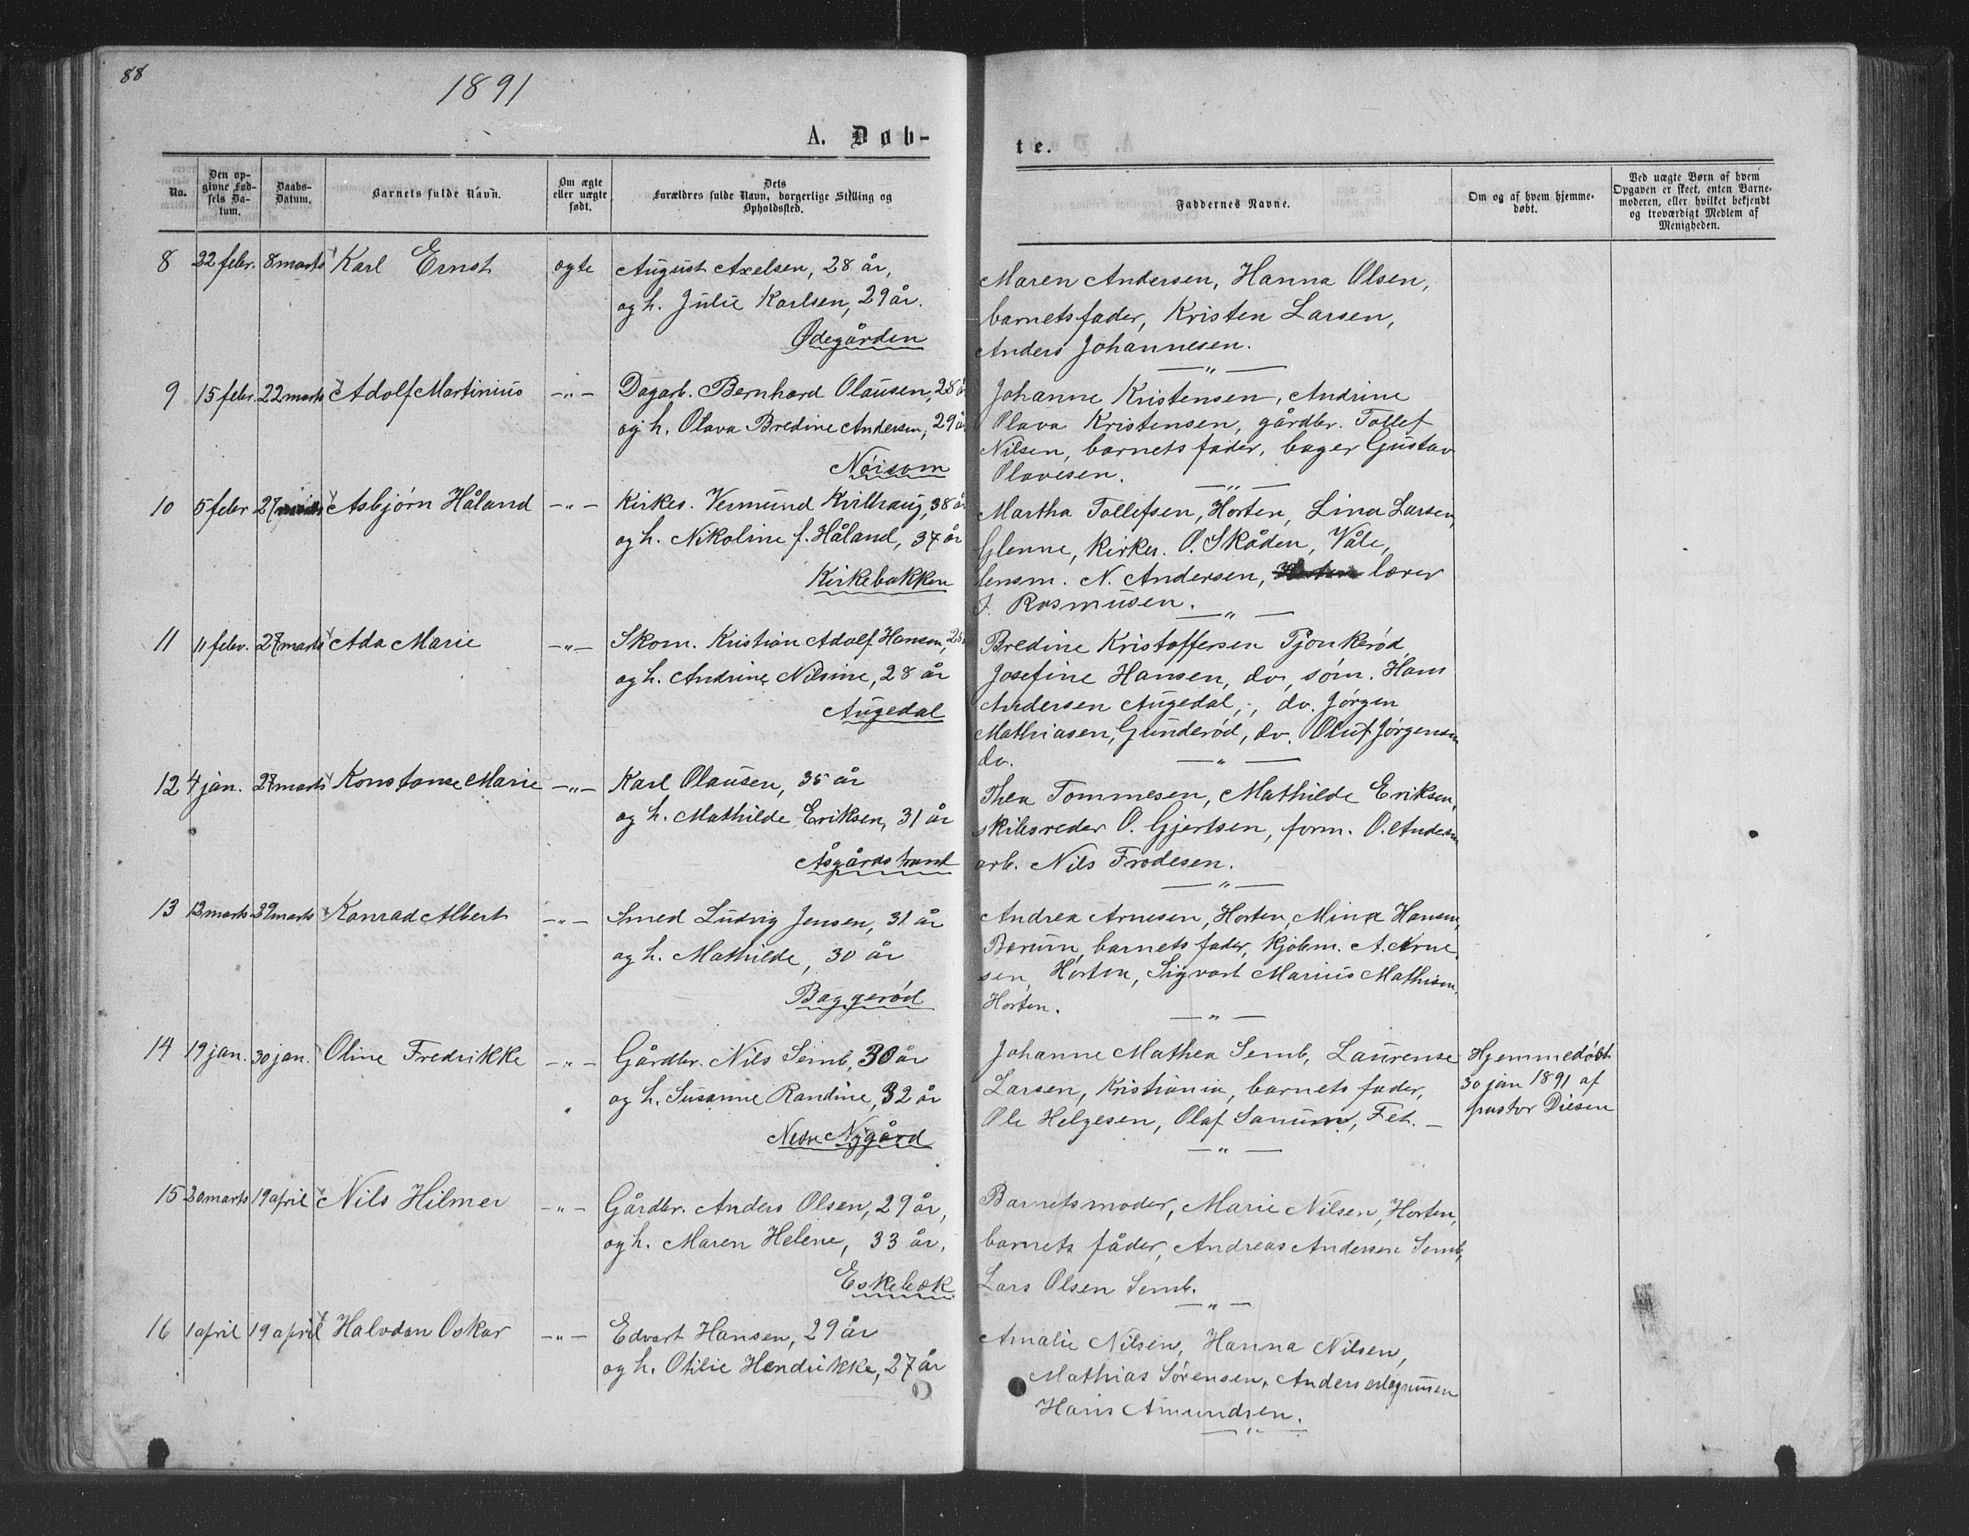 88
1891
A. Døb-
No.
Den op-
givne Fød-
sels Da-
tum.
Daabs-
Datum.
Barnets fulde Navn.
Om ægte
eller uægte
født.
Dets
Forældres fulde Navn, borgerlige Stilling og
Opholdssted.
8 22 febr. 8 marts Karl Ernst ogte August Axelsen, 28 år,
og h. Julie Karlsen, 29 år.
Ødegården
9 15 febr. 22 marts Adolf Martinius —„— Dagarb. Bernhard Olausen, 28 å
og h. Olava Bredine Andersen, 29 å
Nöisom
10 5 febr 27 Asbjørn Håland —„— Kirkes. Vermund Kvilhaug, 38 å
og h. Nikoline f. Håland, 37 år
Kirkebakken
11 11 febr. 27 marts Ada Marie —„— Skom. Kristian Adolf Hansen,
og h. Andrine Nilsine, 28 år
Augedal
12 4 jan. 27 marts Konstanse Marie —„— Karl Olausen, 35 år
og h. Mathilde Eriksen, 31 år
Åsgårdstrand
13 13 marts 29 marts Konrad Albert —„— Smed Ludvig Jensen, 31 år
og h. Mathilde, 30 år
Baggerød
14 19 jan. 30 jan. Oline Fredrikke —„— Gårdbr. Nils Semb, 30 år
og h. Susanne Randine, 32 år
Nedre Nygård
15 20 marts 19 april Nils Hilmer —„— Gårdbr. Anders Olsen, 29 år,
og h. Maren Helene, 33 år.
Eskebæk
16 1 april 19 april Halvdan Oskar —„— Edvart Hansen, 29 år
og h. Otilie Hendrikke, 27 år
te.
Faddernes Navne.
Om og af hvem hjemme-
døbt.
Ved uægte Børn af hvem
Opgaven er skeet, enten Barne-
moderen, eller hvilket bekjendt
og troværdigt Medlem af
Menigheden.
Maren Andersen, Hanna Olsen,
barnets fader, Kristen Larsen,
Anders Johannesen.
—„—
Johanne Kristensen, Andrine
Olava Kristensen, gårdbr. Tollef
Nilsen, barnets fader, bager Gustav
Olavesen.
—„—
Martha Tollefsen, Horten, Lina Larsen,
Glenne, kirkes. O. Skåden, Våle,
lensm. N. Andersen, lærer
J. Rasmusen.
—„—
Bredine Kristoffersen Tjonkerød,
Josefine Hansen, do, søm. Hans
Andersen Augedal, do. Jørgen
Mathiasen, Gunderød, do. Oluf Jørgensen
do.
—„—
Thea Tommesen, Mathilde Eriksen,
skibsreder O. Gjertsen, form. O. Andersen
arb. Nils Frodesen.
—„—
Andrea Arnesen, Horten, Mina Hansen,
Berum, barnets fader, Kjøbm. A. Arne-
sen, Horten, Sigvart Marius Mathisen,
Horten.
—„—
Johanne Mathea Semb, Laurense
Larsen, Kristiania, barnets fader,
Ole Helgesen, Olaf Sanum, Fet. —
—„—
Hjemmedøbt
30 jan 1891 af
pastor Diesen
Barnets moder, Marie Nilsen, Horten,
barnets fader, Andreas Andersen Semb,
Lars Olsen Semb.
—„—
Amalie Nilsen, Hanna Nilsen,
Mathias Sørensen, Anders Magnusen
Hans Amundsen.
—„—